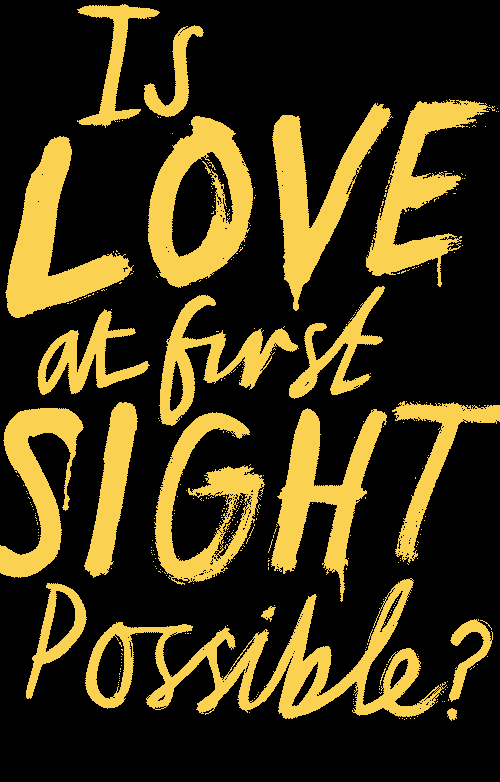 Is
LOVE
at first
SIGHT
Possible?